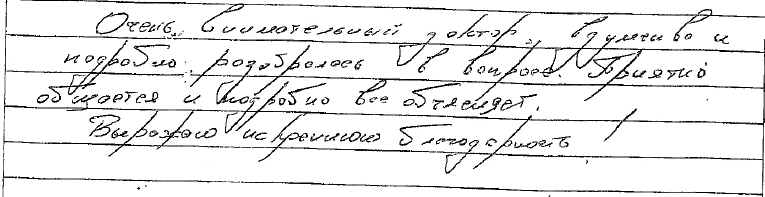 Очень внимательный доктор, вдумчиво и
подробно разобралась в вопросе. Приятно
общается и подробно все объясняет.
Выражаю искреннюю благодарность!